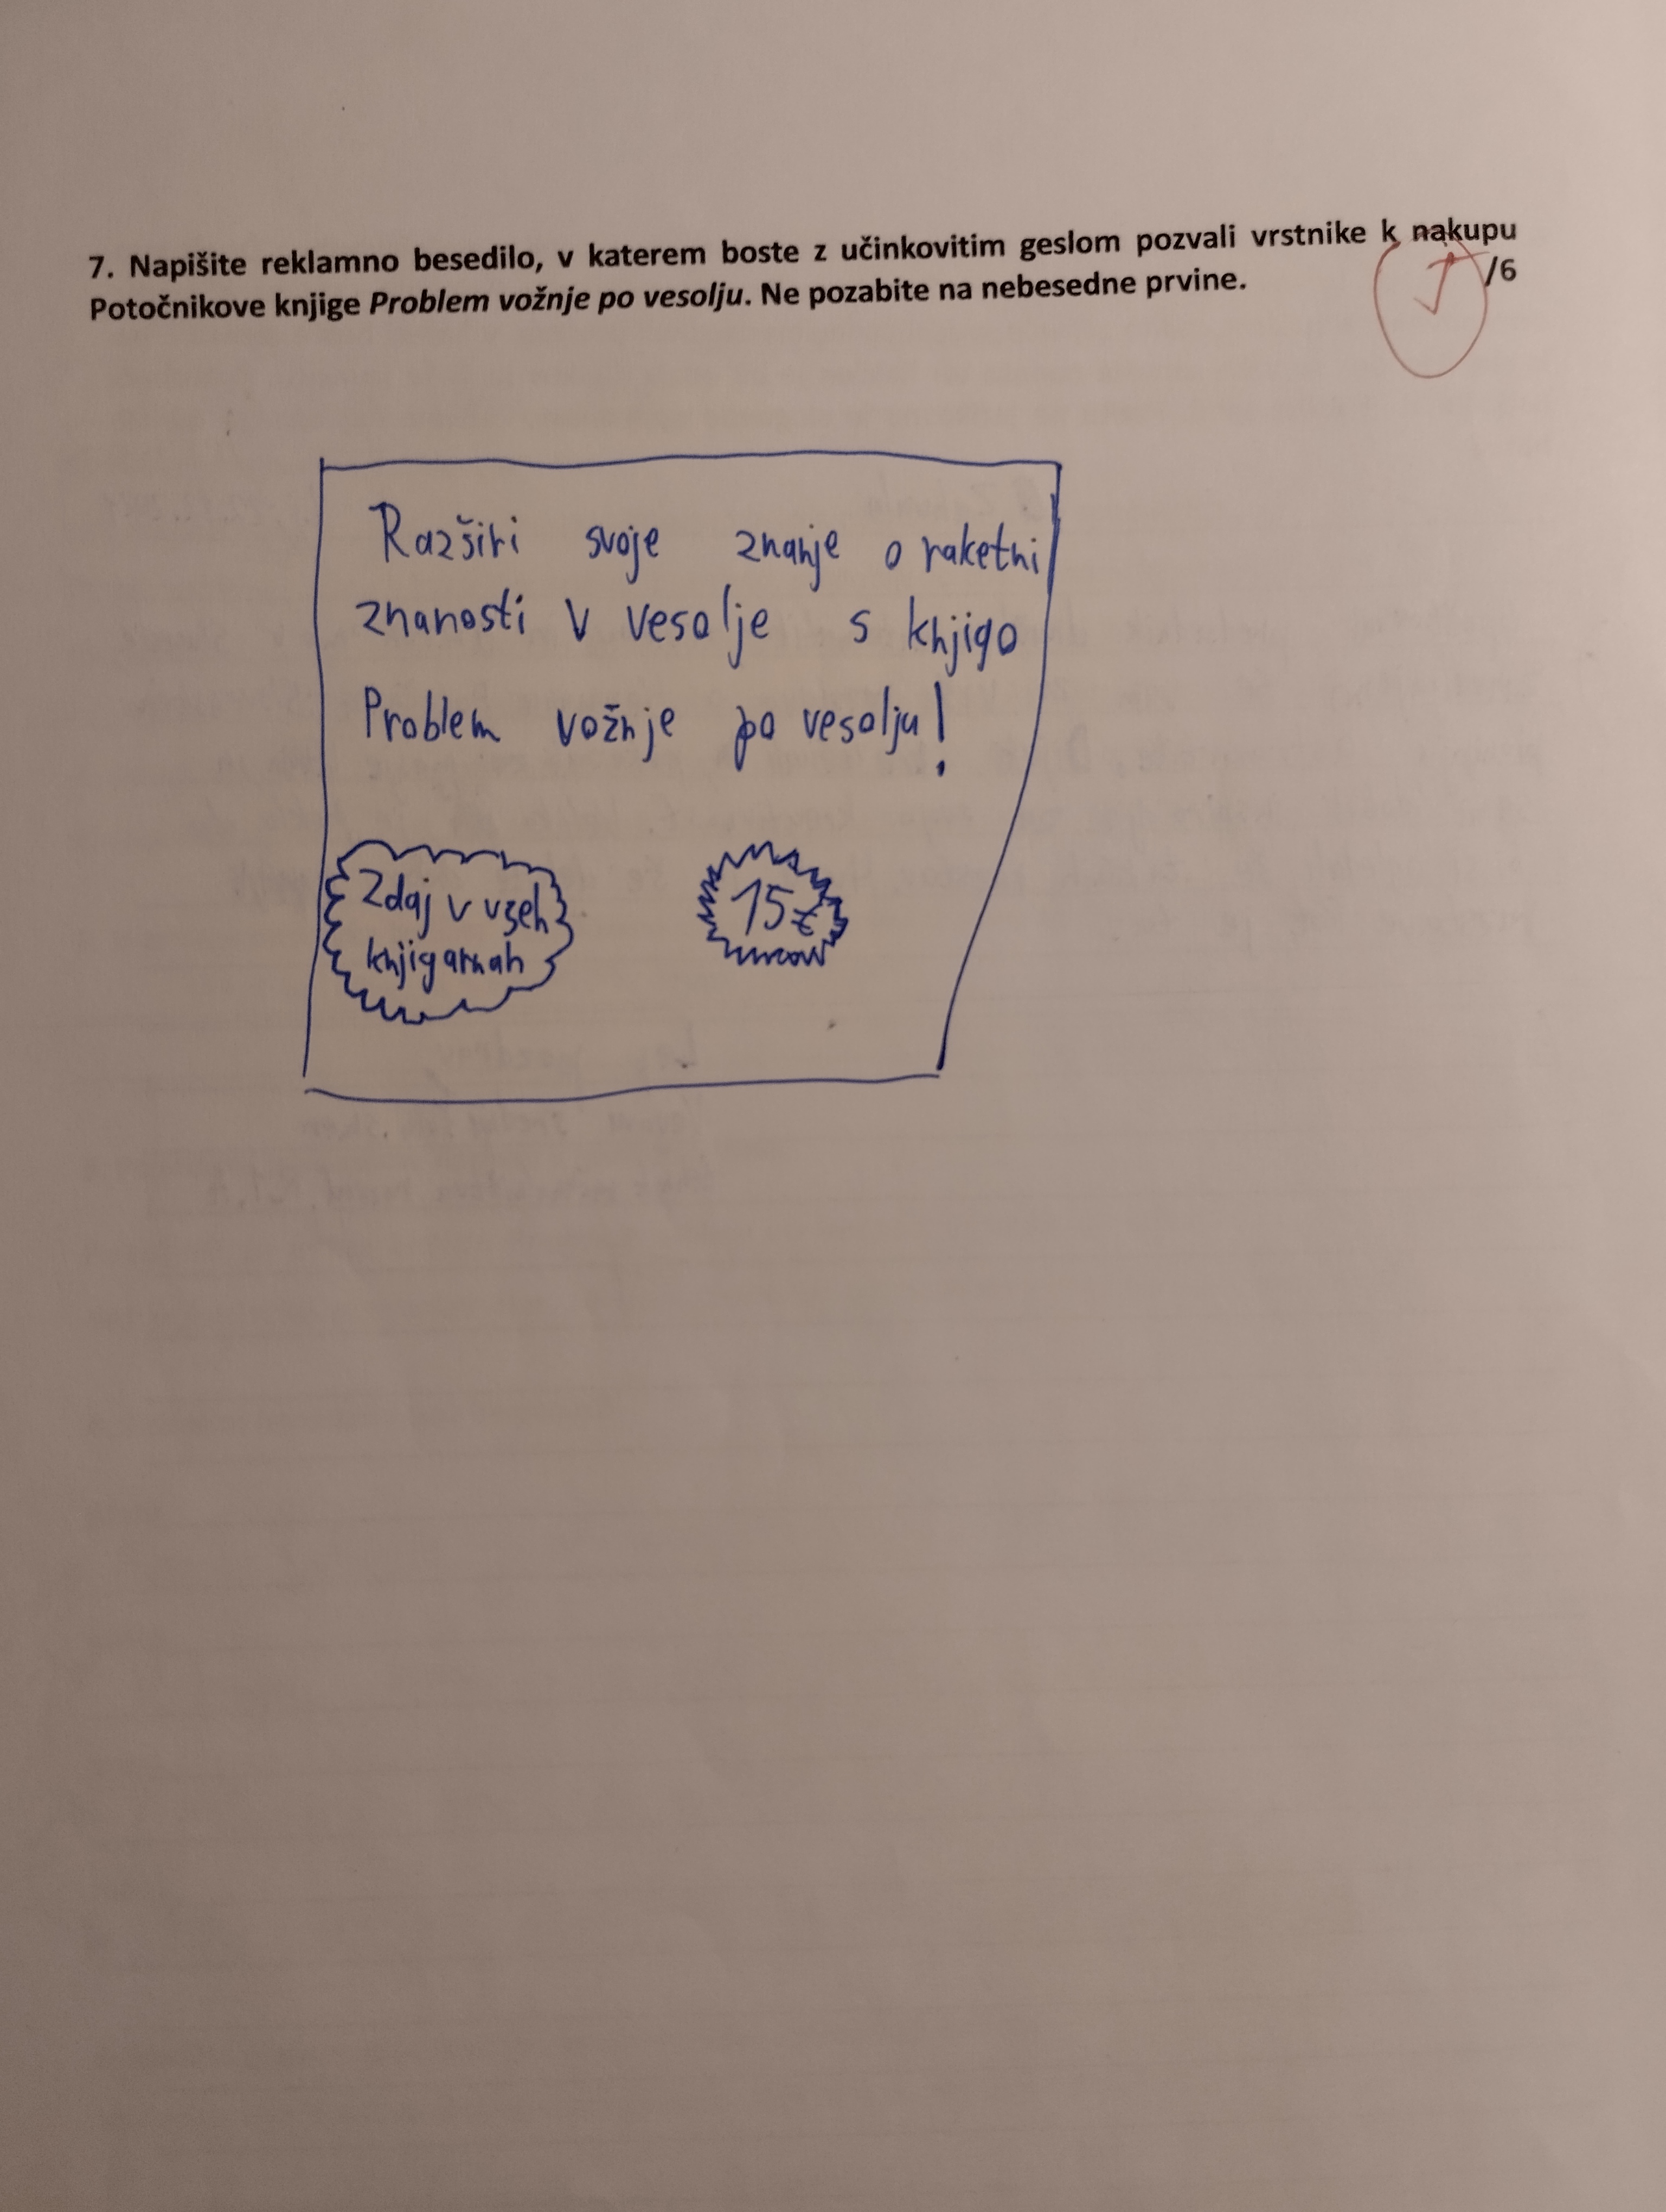 7. Napišite reklamno besedilo, v katerem boste z učinkovitim geslom pozvali vrstnike k nakupu
Potočnikove knjige Problem vožnje po vesolju. Ne pozabite na nebesedne prvine.
/6
Razširi svoje znanje o raketni
znanosti v vesolje s knjigo
Problem vožnje po vesolju!
Zdaj v vseh
knjigarnah
15€